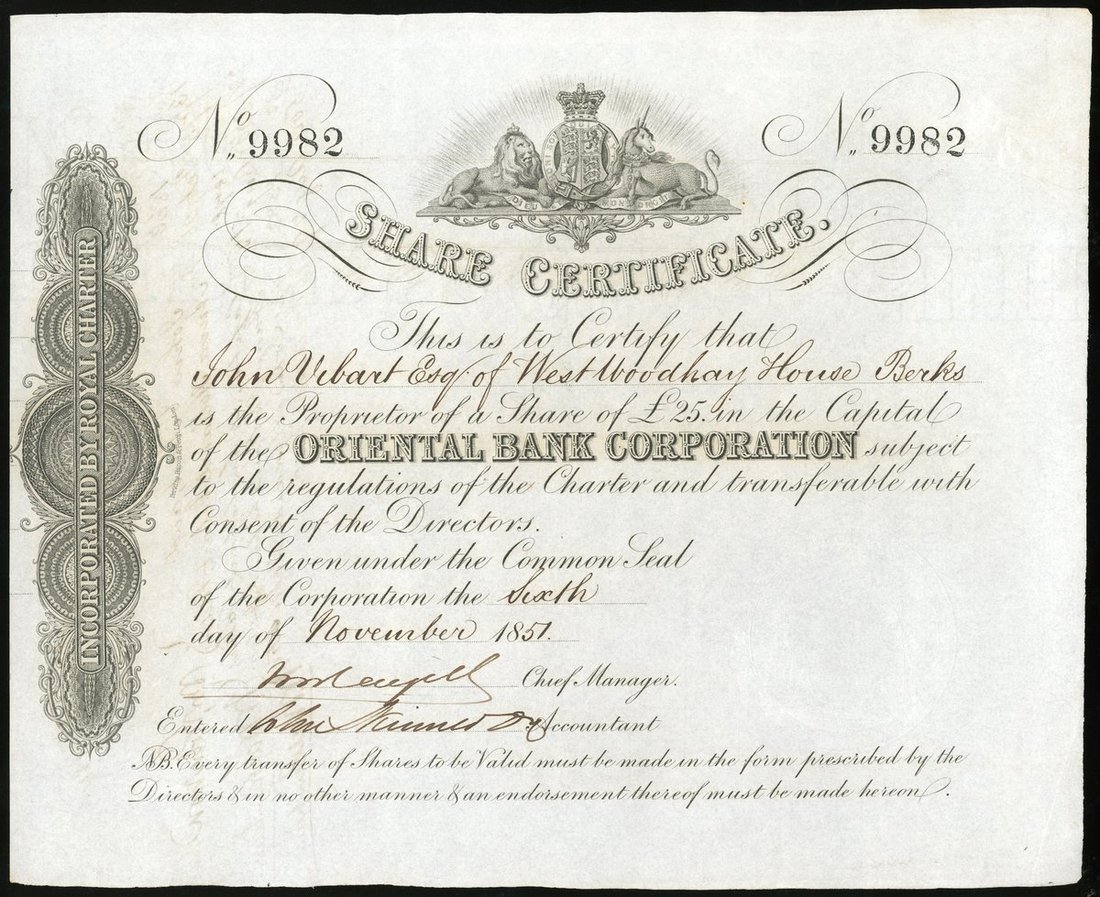 No. 9982
No. 9982
DIEU ET MON DROIT
SHARE CERTIFICATE.
INCORPORATED BY ROYAL CHARTER
This is to Certify that
John Vibart Esqr. of West Woodhay House Berks
is the Proprietor of a Share of £25. in the Capital
of the ORIENTAL BANK CORPORATION subject
to the regulations of the Charter and transferable with
Consent of the Directors.
Given under the Common Seal
of the Corporation the Sixth
day of November 1851.
Chief Manager.
Entered John Skinner Accountant
NB. Every transfer of Shares to be Valid must be made in the form prescribed by the
Directors & in no other manner & an endorsement thereof must be made hereon.